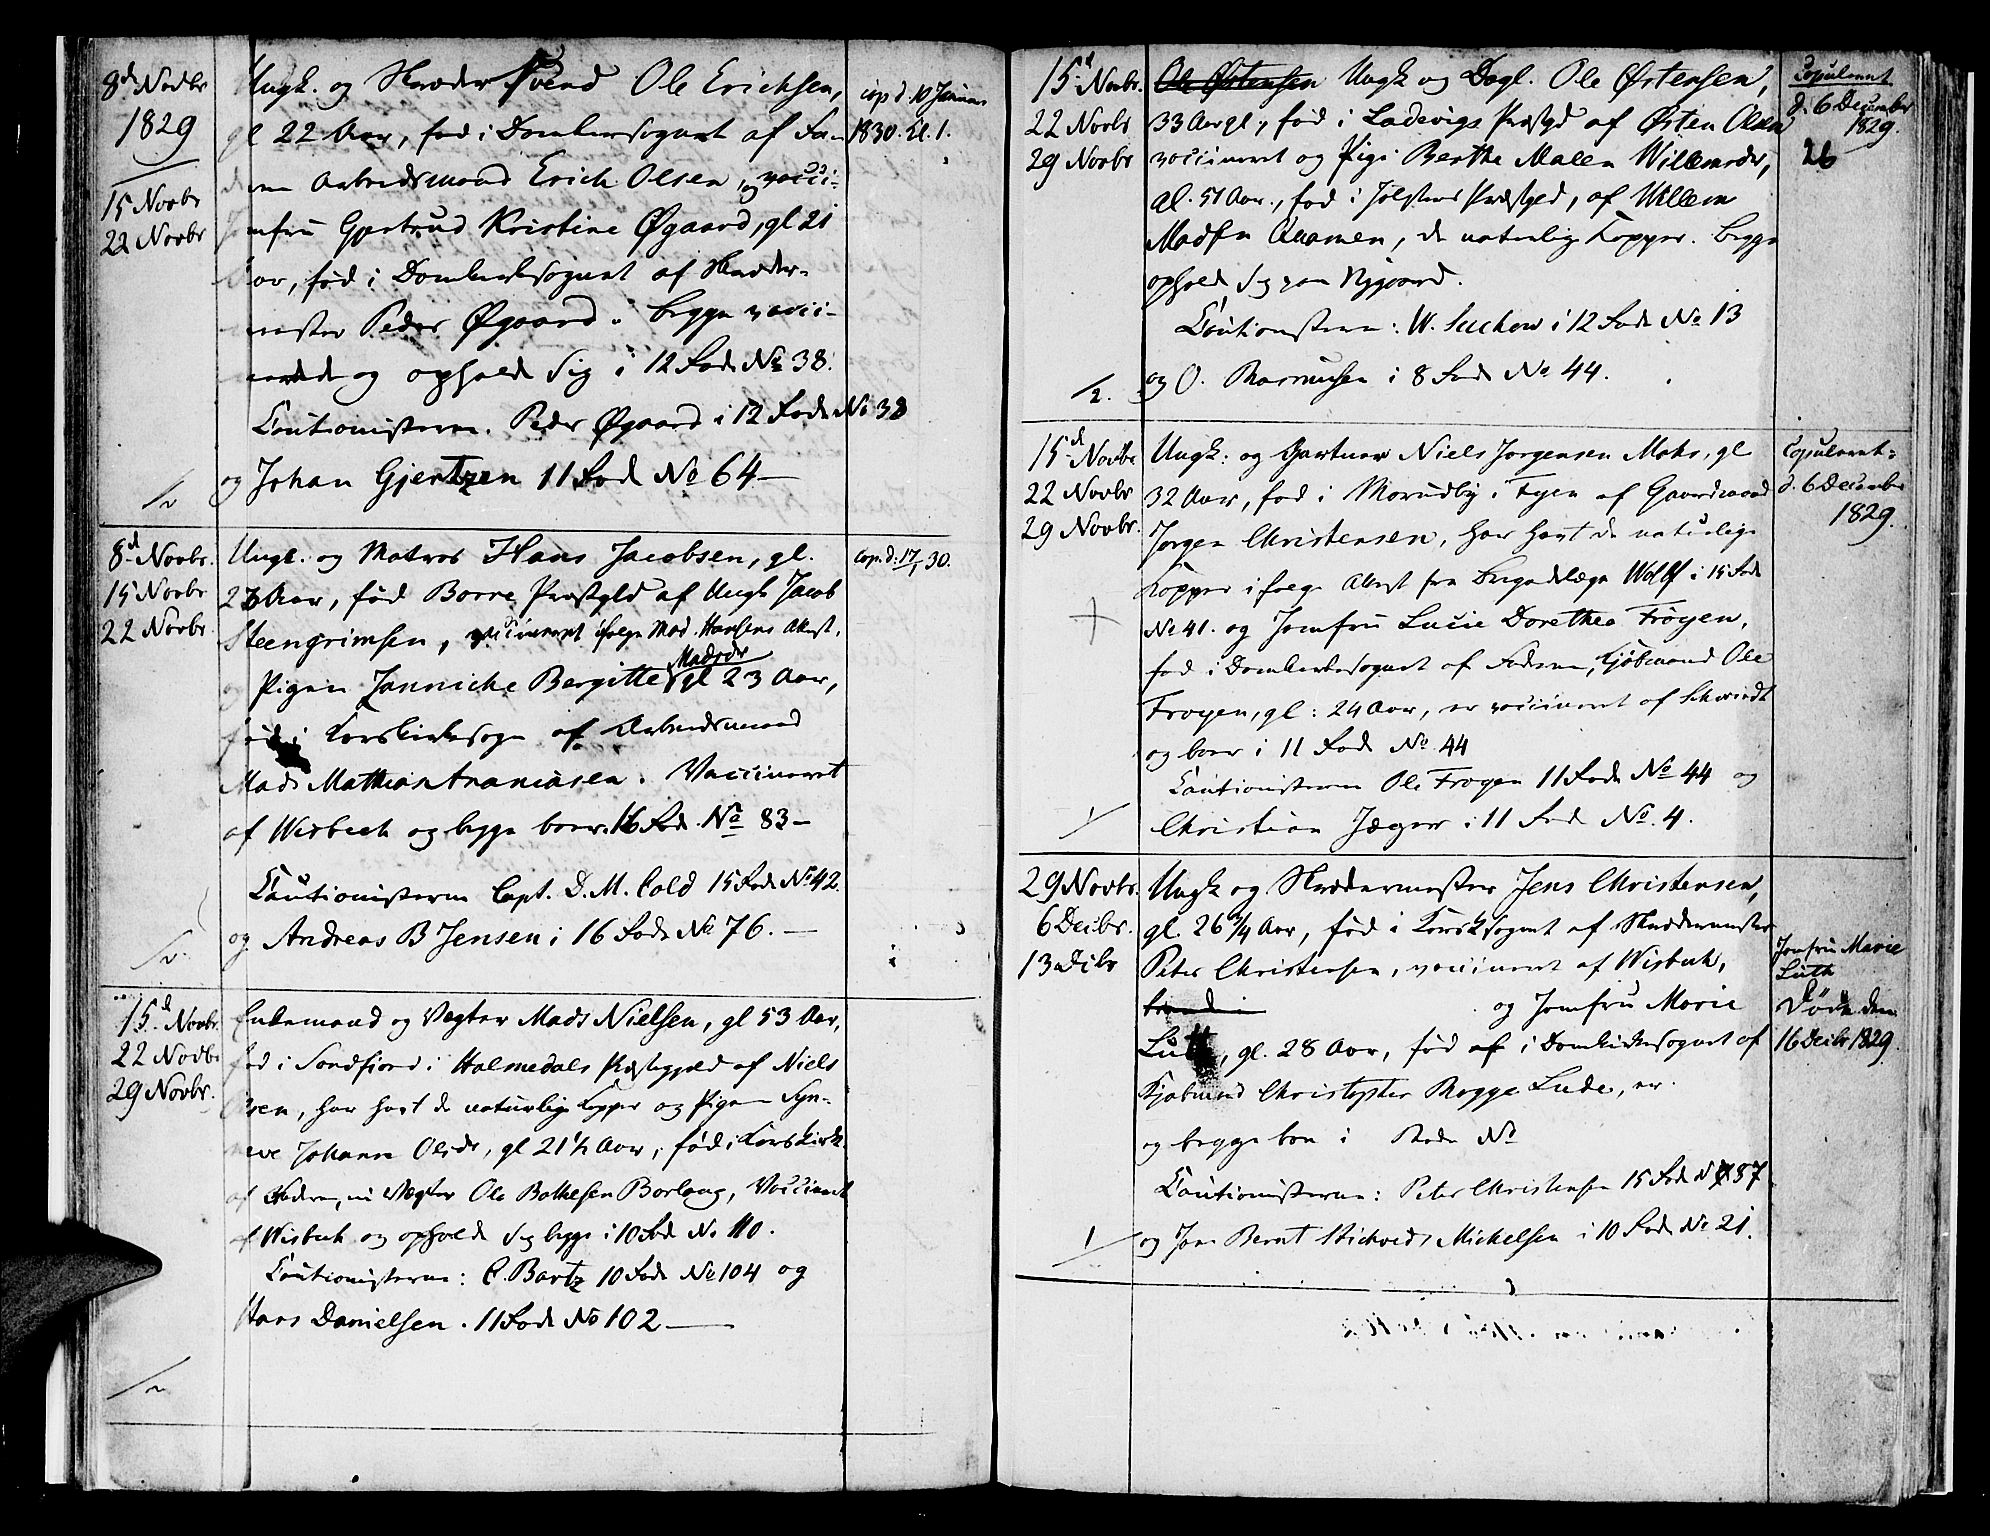 8de Novbr
1829
15 Novbr
22 Novbr
Ungk. og Skræder Svend Ole Erichsen,
gl 22 Aar, fød i Domkirkesognet af
Arbeidsmand Erich Olsen, og
Jomfru Gjertrud Kristine Øgaard, gl 21
Aar, fød i Domkirkesognet af Skræder-
mester Peder Øgaard. begge vacci-
nerede og ophold sig i 12 Rode No 38.
Cautionisterne. Peder Øgaard i 12 Rode No 38
og Johan Gjertzen 11 Rode No 64 —
cop d. 10 Januar
1830. El. 1.
8d Novbr.
15 Novbr
22 Novbr.
Ungk. og Matros Hans Jacobsen, gl.
Aar, fød Borre Præstgld af Ungk Jacob
Steengrimsen, vaccineret ifølge Mad. Hansens Attest.
og Pigen Jannicke Bergitte Madsdr gl 23 Aar,
fød i Korskirkesogn af Arbeidsmand
Mads Mathias Ananiasen. Vaccineret
af Wisbech og begge boer 16 Rode No 83 —
Cautionisterne Capt. D. M. Cold 15 Rode No 42.
og Andreas B Jensen i 16 Rode No 76. —
Cop. d: 17/1 30.
15d Novbr.
22 Novbr
29 Novbr.
Enkemand og Vægter Mads Nielsen, gl 53 Aar,
fød i Sondfiord i Holmedals Præstegjeld af Niels
Olsen, har havt de naturlige Kopper og Pigen Syn-
neve Johanne Olsdr, gl 21 1/2 Aar, fød i Korskirk.
af Vægter Ole Bothesen Borlaug, Vaccineret
af Wisbech og ophold sig begge i 10 Rode No 110.
Cautionisterne: C. Bartz 10 Rode No 104 og
Hans Danielsen. 11 Rode No 102 —
15d Novbr.
22 Novbr
29 Novbr
Ole Østensen Ungk og Dagl. Ole Østensen,
33 Aar gl., fød i Ladevigs Præstgd af Østen Olsen
vaccineret og Pige Berthe Malen Willumsdr,
gl. 51 Aar., fød i Jølsters Præstgld, af Willem
Madsen Aaamen, de naturlige Kopper. begge
ophold sig paa Nygaard.
Cautionisterne: W. Suckow i 12 Rode No 13
og O. Rasmusen i 8 Rode No 44.
Copuleret
d. 6 December
1829.
26
15d Novbr
22 Novbr
29 Novbr.
Ungk: og Gartner Niels Jørgensen Mohr, gl
32 Aar, fød i Morudby i Fyen af Gaardmand
Jørgen Christensen, har havt de naturlige
Kopper ifølge Attest fra Brigadelæge Wolff i 15 Rode
No 41. og Jomfru Lucie Dorethea Frøyen,
fød i Domkirkesognet af Kjøbmand Ole
Frøyen, gl: 24 Aar, er vaccineret af Schwindt
og boer i 11 Rode No 44
Cautionisterne Ole Frøyen 11 Rode No 44 og
Christian Jæger i 11 Rode No. 4.
Copuleret
d. 6 December
1829.
29 Novbr.
6 Decbr.
13 Decbr
Ungk og Skrædermester Jens Christensen,
gl. 26 3/4 Aar, fød i Korsksognet af Skrædermester
Peter Christensen, vaccineret af Wisbech,
og Jomfru Marie
Luth, gl. 28 Aar, fød af i Domkirkesognet af
Kjøbmand Christopher Rogge Lude, er
og begge boe i Rode No
Cautionisterne: Peter Christensen 15 Rode N 87
og Jens Bernt Michelsen i 10 Rode No 21.
Jomfru Marie
Luth
Døde den
16 Decbr 1829.